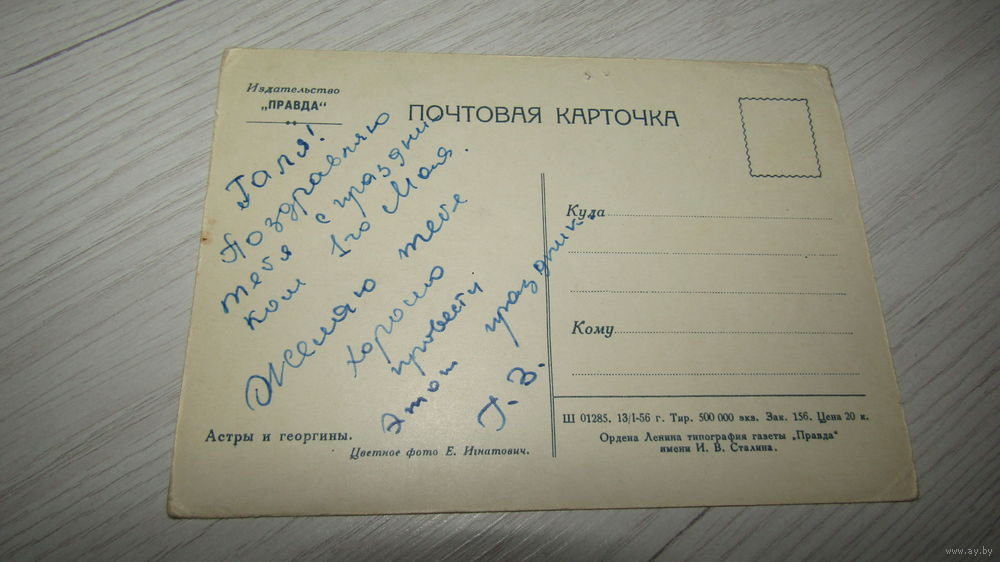 Издательство
„ПРАВДА“
ПОЧТОВАЯ КАРТОЧКА
Галя!
Поздравляю
тебя с праздни
ком 1го Мая.
Желаю тебе
хорошо
провести
этот праздник.
Г. В.
Куда
Кому
Астры и георгины.
Цветное фото Е. Игнатович.
Ш 01285. 13/I-56 г. Тир. 500 000 экз. Зак. 156. Цена 20 к.
Ордена Ленина типография газеты „Правда“
имени И. В. Сталина.
www.ay.by